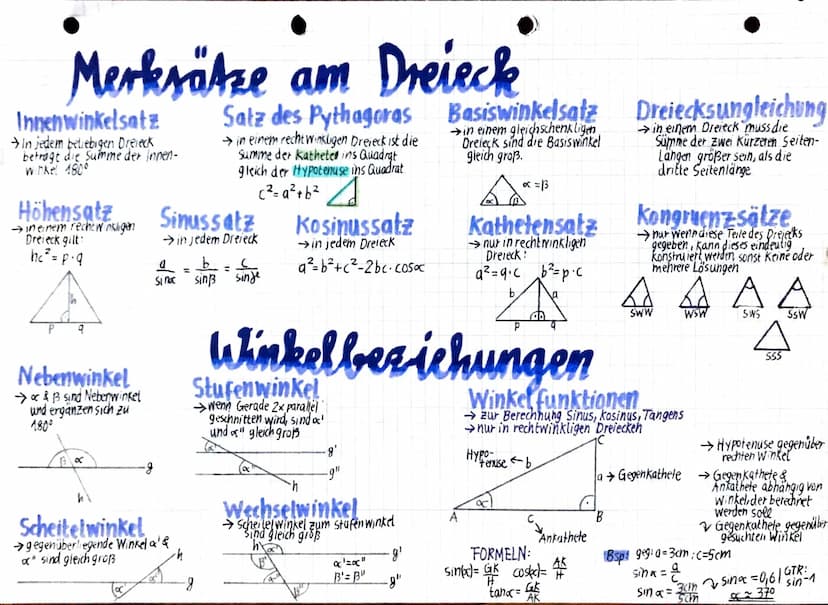 Merksätze am Dreieck
Innenwinkelsatz
→ In jedem beliebigen Dreieck
beträgt die Summe der Innen-
winkel 180°
Satz des Pythagoras
→ in einem rechtwinkligen Dreieck ist die
Summe der Katheten ins Quadrat
gleich der Hypotenuse ins Quadrat
c²=a²+b²
Basiswinkelsatz
→ in einem gleichschenkligen
Dreieck sind die Basiswinkel
gleich groß.
α=β
α β
Dreiecksungleichung
→ in einem Dreieck muss die
Summe der zwei kürzeren Seiten-
längen größer sein, als die
dritte Seitenlänge
Höhensatz
→ in einem rechtwinkligen
Dreieck gilt:
hc²=p·q
h
p q
Sinussatz
→ in jedem Dreieck
a/sinα = b/sinβ = c/sinγ
Kosinussatz
→ in jedem Dreieck
a²=b²+c²-2bc·cosα
Kathetensatz
→ nur in rechtwinkligen
Dreieck!
a²=q·c b²=p·c
b a
p q
Kongruenzsätze
→ nur wenn diese Teile des Dreiecks
gegeben, kann dieses eindeutig
konstruiert werden, sonst keine oder
mehrere Lösungen
SWW WSW SWS SSW
SSS
Winkelbeziehungen
Nebenwinkel
→ α & β sind Nebenwinkel
und ergänzen sich zu
180°
β α
g
h
Stufenwinkel
→ wenn Gerade 2x parallel
geschnitten wird, sind α'
und α" gleich groß
α' g'
α" g"
h
Winkelfunktionen
→ zur Berechnung Sinus, Kosinus, Tangens
→ nur in rechtwinkligen Dreiecken
C
Hypo-
tenuse ← b
a → Gegenkathete
α
A c B
Ankathete
→ Hypotenuse gegenüber
rechten Winkel
→ Gegenkathete &
Ankathete abhängig von
Winkel, der berechnet
werden soll
↳ Gegenkathete gegenüber
gesuchten Winkel
Scheitelwinkel
→ gegenüberliegende Winkel α' &
α" sind gleich groß
h
α' α"
g
Wechselwinkel
→ Scheitelwinkel zum Stufenwinkel
sind gleich groß
h
g'
α'=α"
β'=β"
g"
FORMELN:
sin(α)= GK/H cos(α)= AK/H
tanα= GK/AK
Bsp: geg: a=3cm; c=5cm
sinα= a/c
sinα= 3cm/5cm
sinα=0,6 | GTR: sin⁻¹
α≈37°